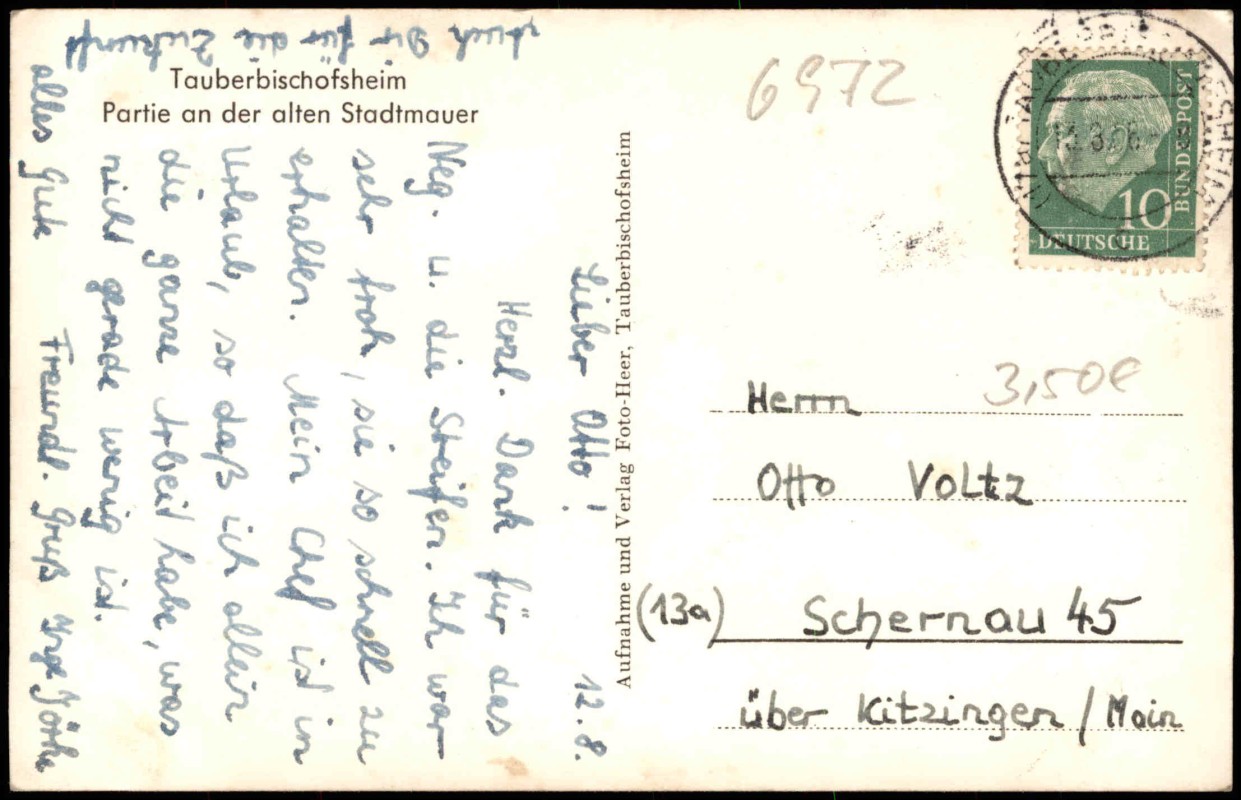 Tauberbischofsheim
Partie an der alten Stadtmauer
12.8.
Lieber Otto!
Herzl. Dank für das
Neg. u. die Streifen. Ich war
sehr froh, sie so schnell zu
erhalten. Mein Chef ist in
Urlaub, so daß ich allein
die ganze Arbeit habe, was
nicht gerade wenig ist.
alles Gute Freundl. Gruß
Dir für die Zukunft
Aufnahme und Verlag Foto-Heer, Tauberbischofsheim
6972
10
DEUTSCHE
BUNDESPOST
3,50€
Herrn
Otto Voltz
(13a) Schernau 45
über Kitzingen / Main